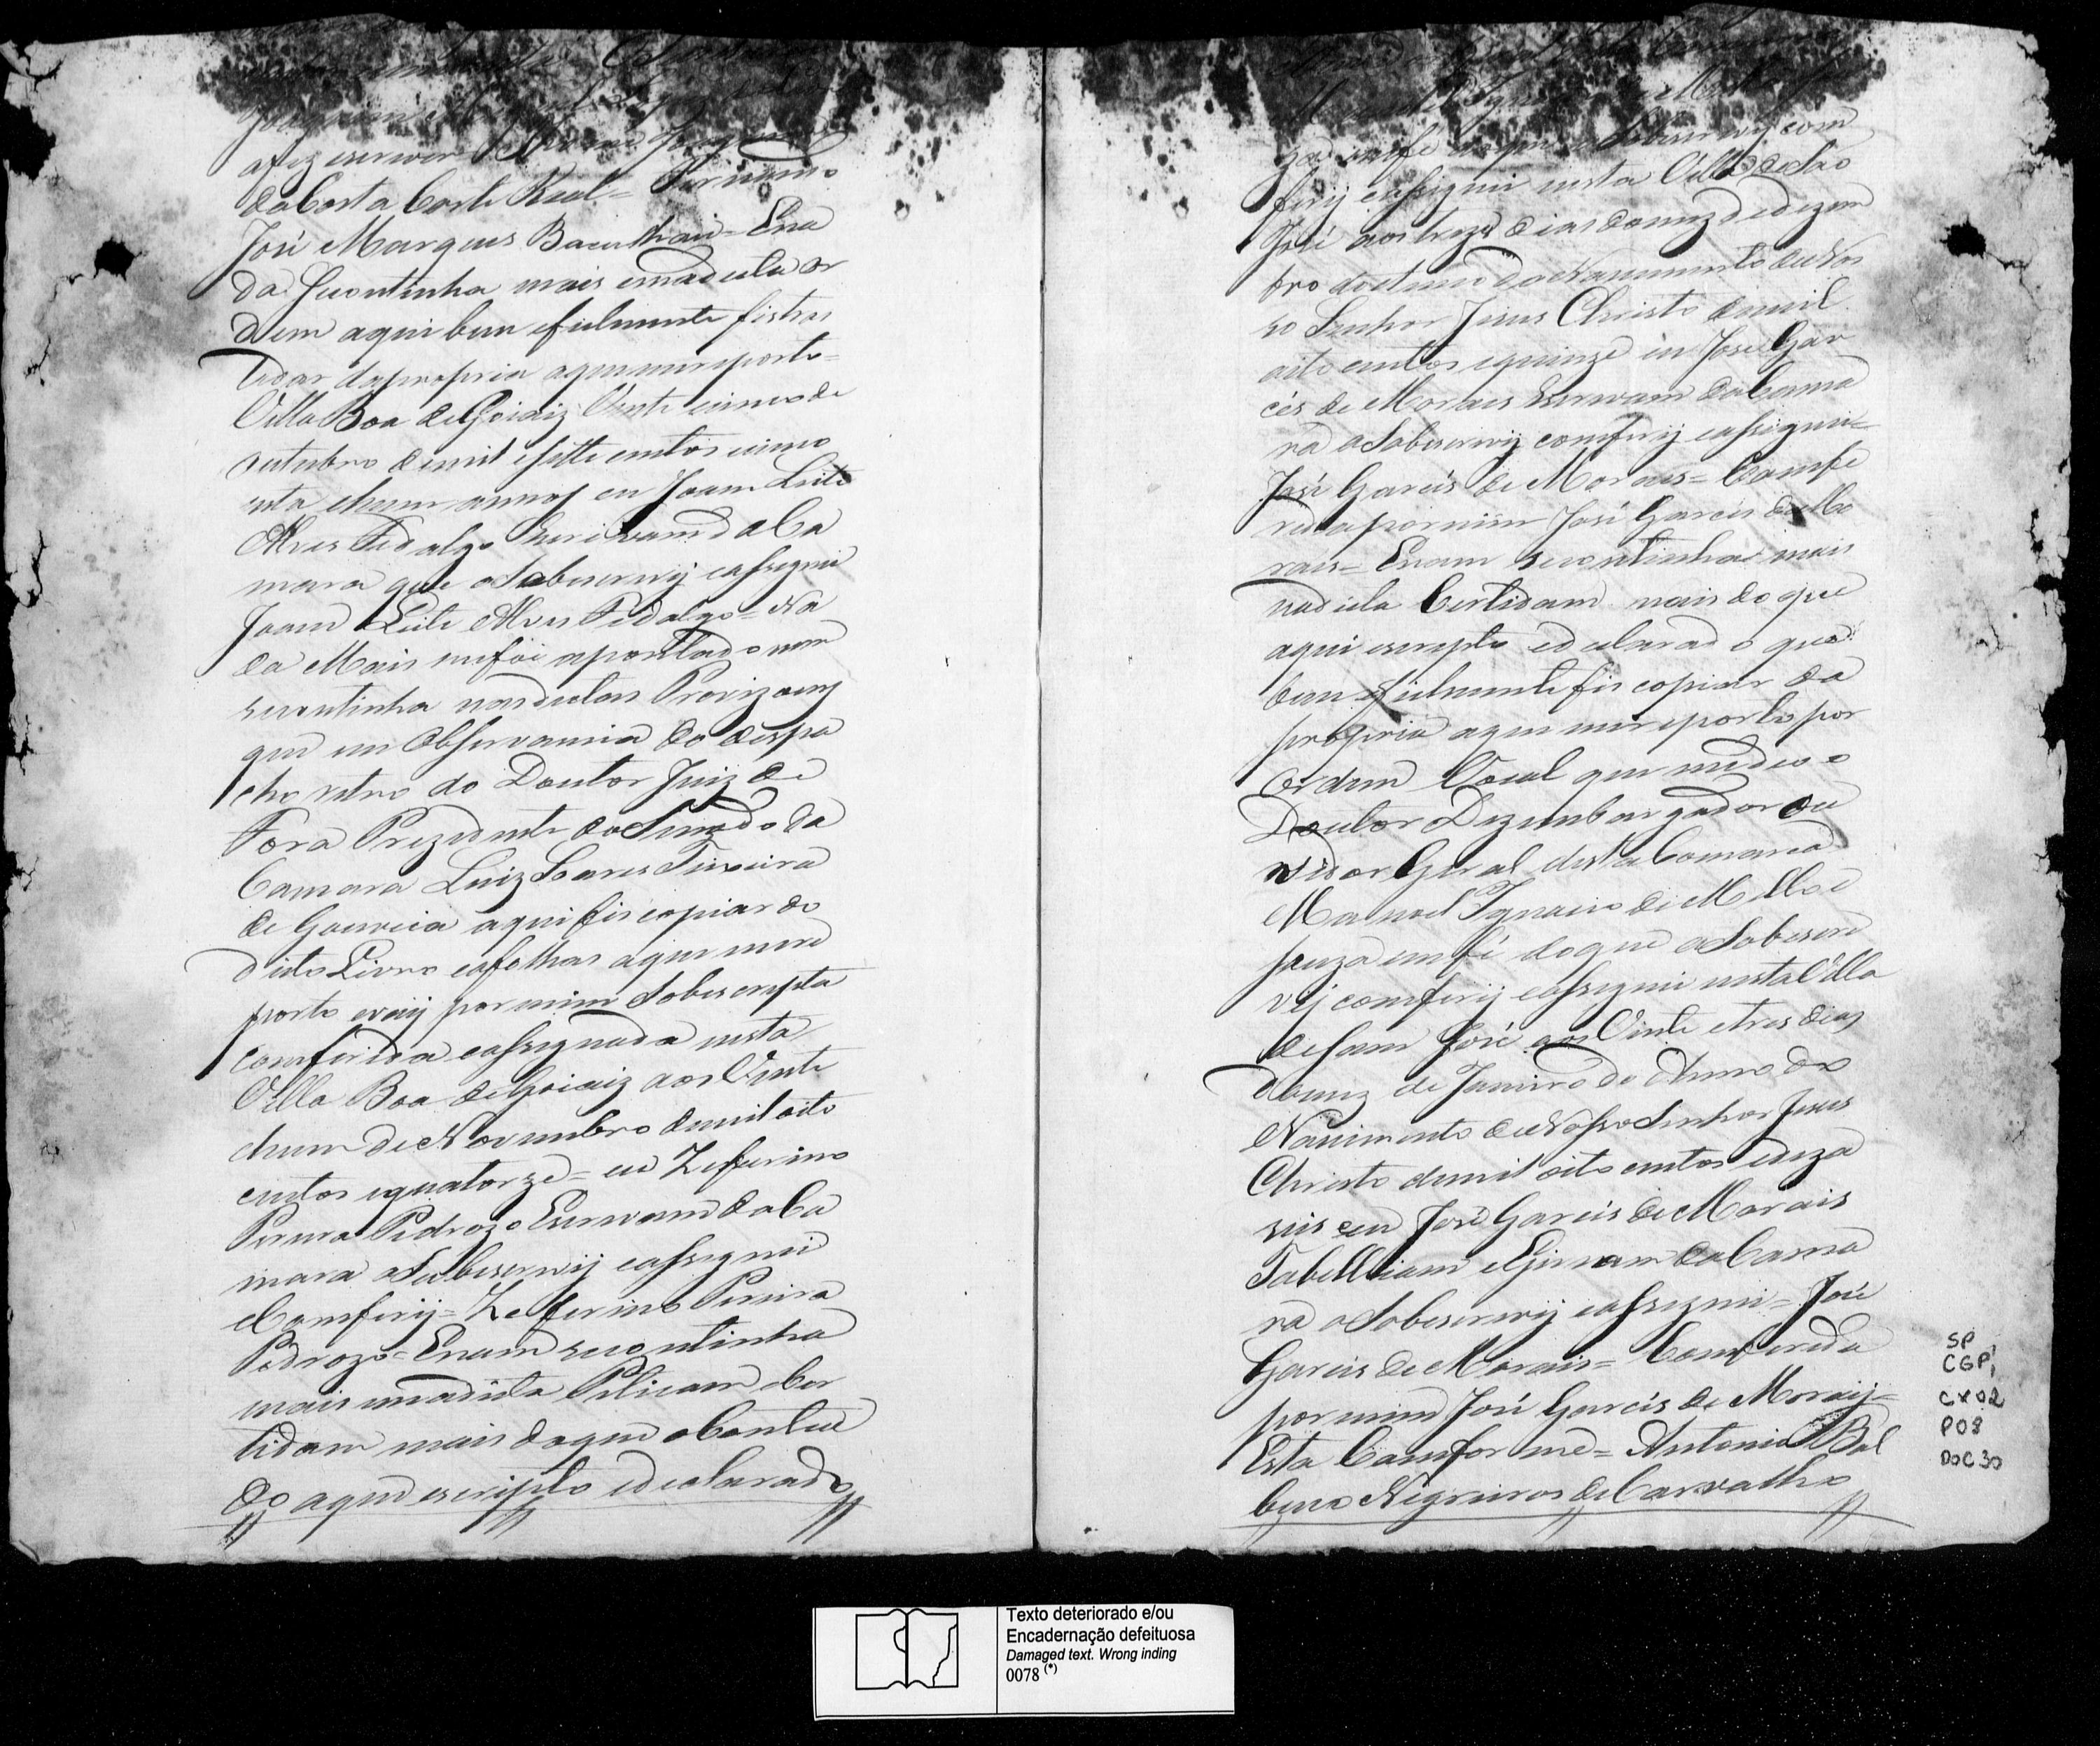 afez escrever
da Costa Corte Real = Fernando
José Marques Bacalhao = Era
da Sicontinha mais emadeta or
dem aqui bem efielmente fistras
ladar dapropria aquemereporto =
Villa Boa de Goiaiz Vinte eimcode
outubro demil esette centos cimco
enta ehum annos eu Joam Leite
Alves Fidalgo Escrivam da Ca
mara que aSobescrevij eassignei
Joam Leite Alves Fidalgo = Na
da Mais mefoi apontado nem
secontinha nasdictas Provizoens
que em Observancia do despa
cho retro do Doutor Juiz de
Fora Prezidente do Senado da
Camara Luiz Soares Teixeira
de Gouveia aqui fis copiar do
dicto Livro eafolhas aque mere
porto evaij por mim Sobescripta
comferida eassignada nesta
Villa Boa de Goiaiz aos Vinte
ehum de Novembro demil oito
centos equatorze = eu Zeferino
Pereira Pedrozo Escrivam da Ca
mara aSubescrevij eassignei
eComferij = Zeferino Pereira
Pedrozo = Enam secontinha
mais emadicta Peticam eCer
tidam mais doque oContheu
do aqui escripto edeclarado
ferij eassignei nesta Villa de São
José aos treze dias domez dedezem
bro doAnno do Nascimento de Nos
so Senhor Jesus Christo demil
oito centos equinze eu Jose Gar
cês de Moraes Escrivam da Cama
ra aSobescrevij comferij eassignei =
José Garcês de Moraes = Comfe
rida por mim José Garces de Mo
rais = Enam secontinha mais
nadicta Certidam mais do que
aqui escripto edeclarado o que
bem efielmente fis copiar da
propria aque mereporto por
Ordem Vocal que medeo o
Doutor Dezembargador Ou
vidor Geral desta Comarca
Manoel Ignacio de Mello e
Souza em fé doque aSobescre
vij comferij eassignei nesta Villa
de Sam José aos Vinte etres dias
domez de Janeiro do Anno do
Nascimento de Nosso Senhor Jesus
Christo demil oito centos edeza
seis eeu José Garcês de Morais
Tabelliam eEscrivam da Cama
ra aSobescrevij eassignei = José
Garces de Morais = Comferida
por mim José Garcês de Moraij =
Esta Comforme = Antonio Bal
bino Negreiros de Carvalho
SP
CGP1
CX02
P08
DOC30
Texto deteriorado e/ou
Encadernação defeituosa
Damaged text. Wrong inding
0078 (*)